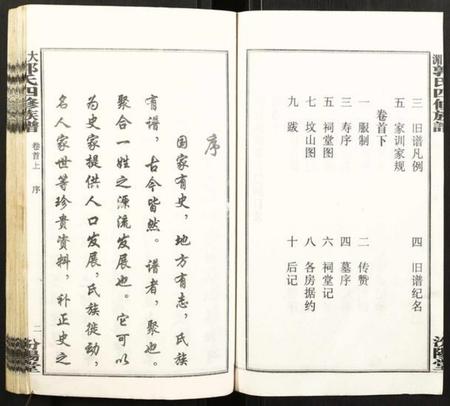 三 旧谱凡例
四 旧谱纪名
五 家训家规
卷首下
一 服制
二 传赞
三 寿序
四 墓序
五 祠堂图
六 祠堂记
七 坟山图
八 各房据约
九 跋
十 后记
郭氏四修族谱
汾陽堂
序
国家有史，地方有志，氏族
有谱，古今皆然。谱者，聚也。
聚合一姓之源流发展也。它可以
为史家提供人口发展，民族徙动，
名人家世等珍贵资料，补正史之
大郭氏四修族譜
卷首上 序
二
汾陽堂